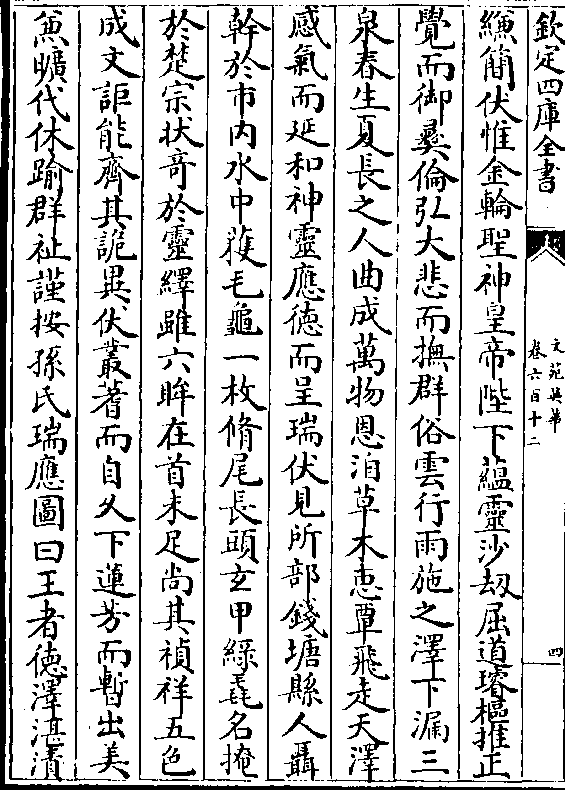 欽定四庫全書
文苑英華
卷六百十二
四
縑簡伏惟金輪聖神皇帝陛下蘊靈沙刼屈道璿樞推正
覺而御彛倫弘大悲而撫群俗雲行雨施之澤下漏三
泉春生夏長之人曲成萬物恩洎草木恵覃飛走天澤
感氣而延和神靈應徳而呈瑞伏見所部錢塘縣人聶
幹於市内水中獲毛龜一枚脩尾長頭玄甲緑毳名掩
於楚宗状竒於靈繹雖六眸在首未足尚其禎祥五色
成文詎能齊其詭異伏叢蓍而自久下蓮芳而暫出美
兼曠代休踰群祉謹按孫氏瑞應圖曰王者徳澤湛清